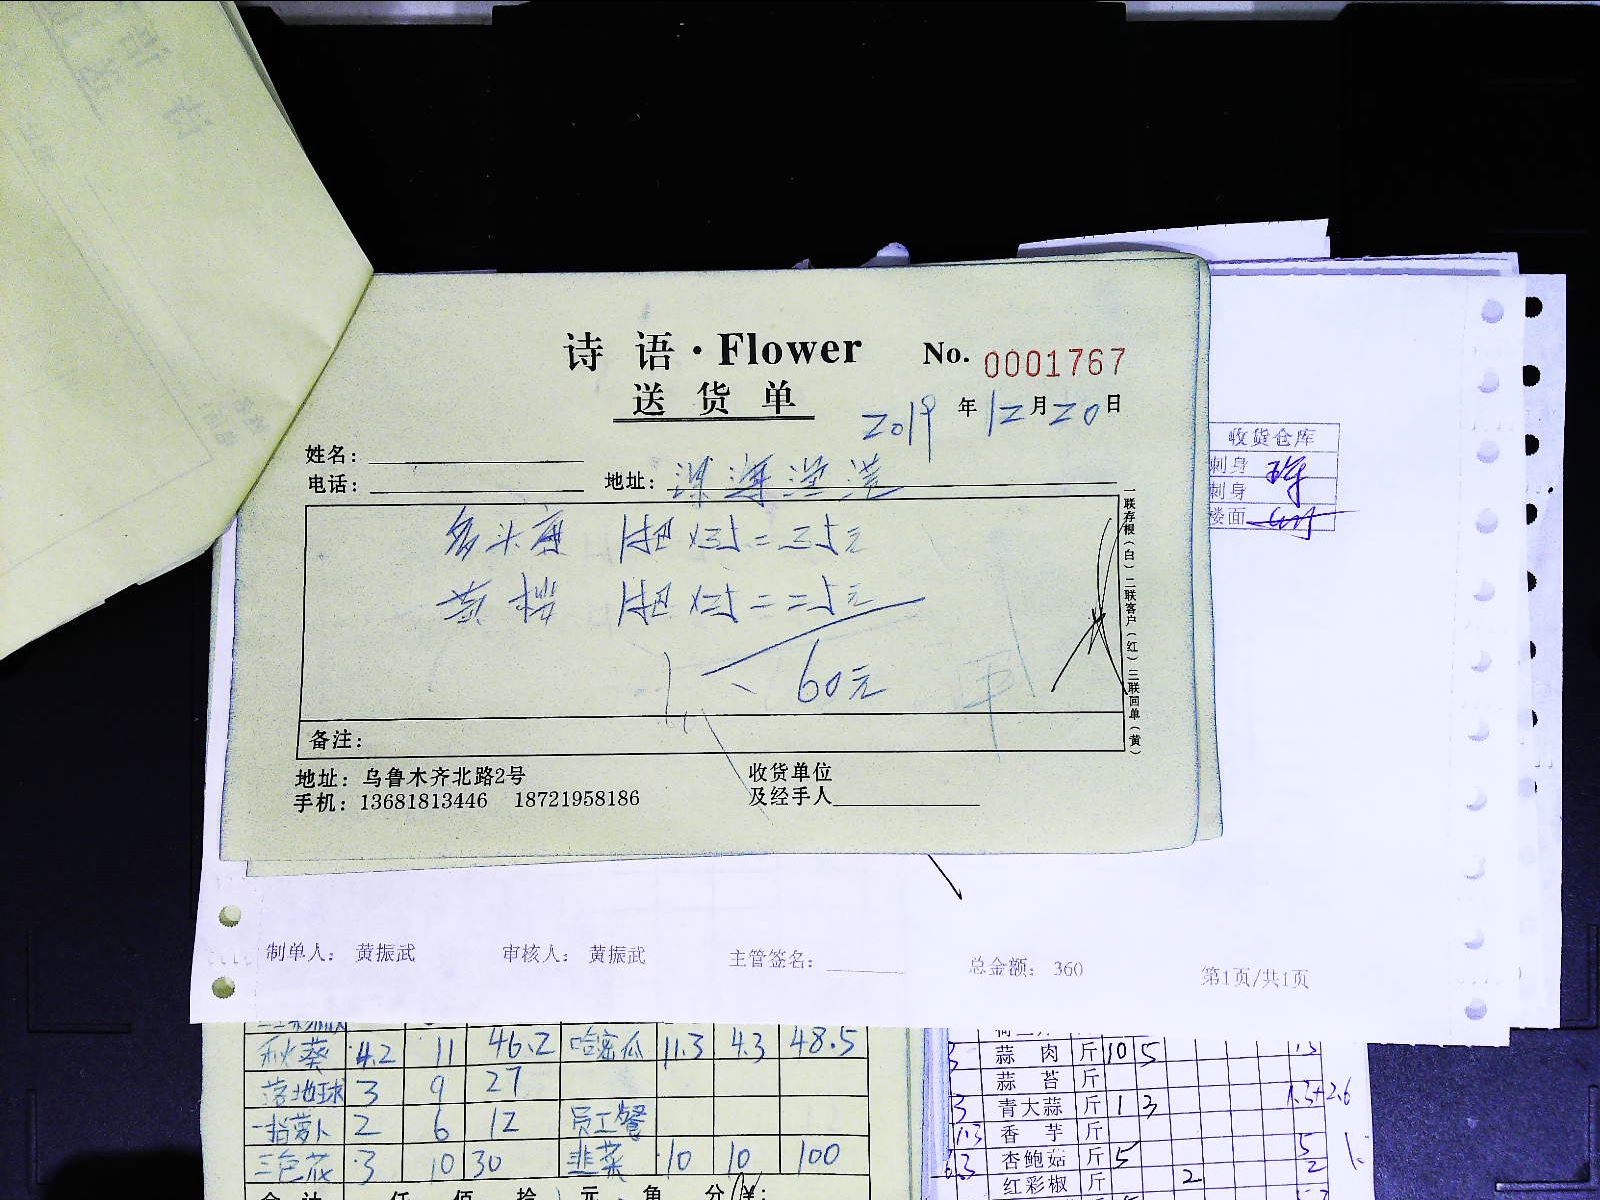 诗 语 · Flower No. 0001767
送 货 单
2019 年 12 月 20 日
姓名：
电话： 地址：
多头 1把 =35元
黄 1把 =25元
60元
备注：
地址：乌鲁木齐北路2号
手机：13681813446 18721958186
收货单位
及经手人
一联存根（白）二联客户（红）三联回单（黄）
收货仓库
刺身
刺身
楼面
制单人： 黄振武 审核人： 黄振武 主管签名： 总金额： 360 第1页/共1页
秋葵 4.2 11 46.2 哈密瓜 11.3 4.3 48.5
落地球 3 9 27
一指萝卜 2 6 12 员工餐
三色花 3 10 30 韭菜 10 10 100
合 计 仟 佰 拾 元 角 分 ¥：
3 蒜 肉 斤 10 5
蒜 苔 斤
3 青大蒜 斤 1 3
香 芋 斤
杏鲍菇 斤 5 5
红彩椒 斤 2 2